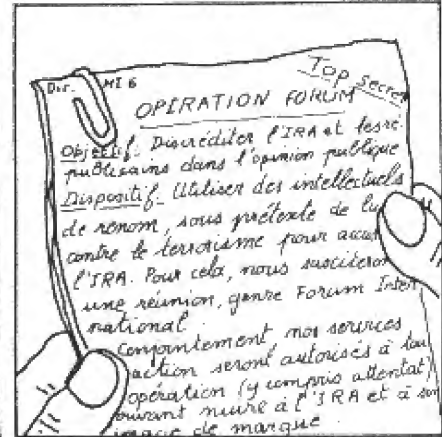 Top Secret
Dos. MI 6
OPERATION FORUM
Objectif. Discréditer l'IRA et les ré-
publicains dans l'opinion publique
Dispositif. Utiliser des intellectuels
de renom, sous prétexte de lu
contre le terrorisme pour accu
l'IRA. Pour cela, nous susciteron
une réunion, genre Forum Inter
national
Conjointement nos services
action seront autorisés à tou
opération (y compris attentat)
ouvant nuire à l'IRA et à son
image de marque